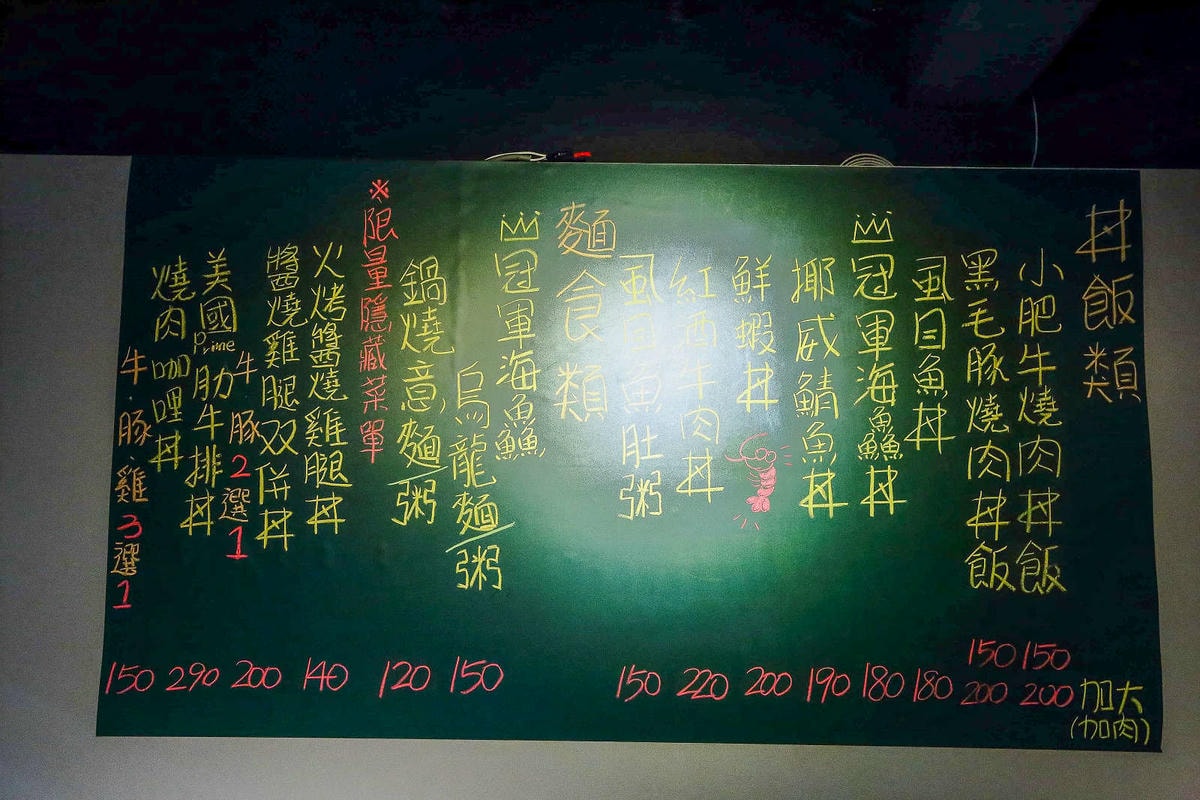 丼飯類
小肥牛燒肉丼飯 150 200
加大
(加肉)
黑毛豚燒肉丼飯 150 200
虱目魚丼 180
冠軍海鱻丼 180
椰威鯖魚丼 190
鮮蝦丼 200
紅酒牛肉丼 220
虱目魚肚粥 150
麵食類
冠軍海鱻
烏龍麵/粥 150
鍋燒意麵/粥 120
※限量隱藏菜單
火烤醬燒雞腿丼 140
醬燒雞腿双併丼 200
牛.豚2選1
美國Prime肋牛排丼 290
燒肉咖哩丼 150
牛.豚.雞3選1